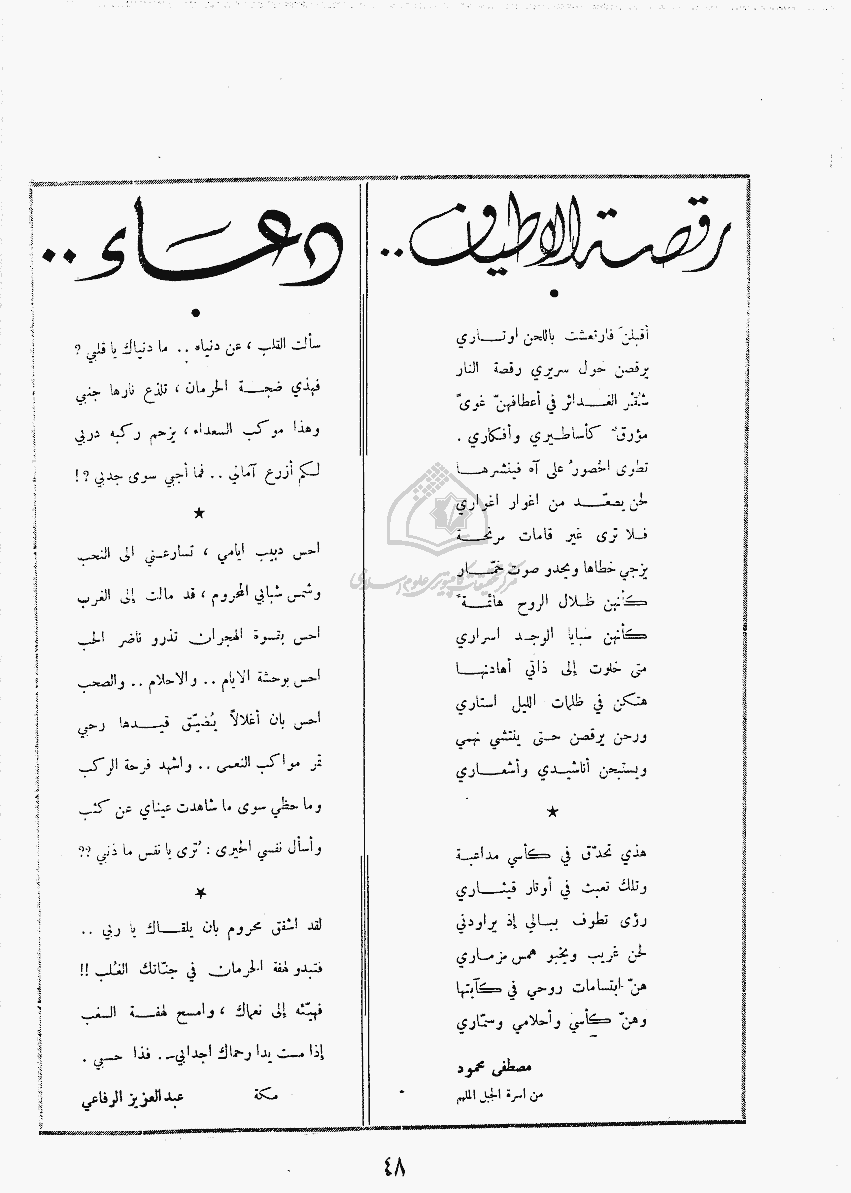 رقصة الاطياف ..
أقبلنَ فارتعشت باللحن اوتـــاري
يرقصن حول سريري رقصة النار
شُقْرُ الغـــدائر في أعطافهنّ غوىً
مؤرقٌ كأساطيري وأفكاري .
تطوى الخصورُ على آه فينشرهـــا
لحن يصعّـــد من اغوار اغواري
فـــلا ترى غير قامات مرنحـــة
يزجي خطاها ويحدو صوت خمّـــار
كأنهن ظـــلال الروح هائمـــةً
كأنهن سبايا الوجـــد اسراري
متى خلوت إلى ذاتي أهادنهـــا
هتكن في ظلمات الليل استاري
ورحن يرقصن حـــتى ينتشي نهمي
ويستبحن أناشيـــدي وأشعـــاري
★
هذي تحدّق في كأسي مداعبة
وتلك تعبث في أوتار قيثـــاري
رؤى تطوف ببـــالي إذ يراودني
لحن غريب ويخبو همس مزمـــاري
هنّ ابتسامات روحي في كآبتها
وهنّ كأسي وأحلامي وسمّاري
مصطفى محمود
من اسرة الجبل الملهم
دعـــاء ..
سألت القلب ، عن دنياه .. ما دنياك يا قلبي ؟
فهذي ضجـــة الحرمان ، تلذع نارها جنبي
وهذا موكب السعداء ، يزحم ركبه دربي
لكم أزرع آماني .. فما أجني سوى جدبي ؟!
★
احس دبيب ايامي ، تسارعـــني الى النحب
وشمس شبابي المحروم ، قد مالت إلى الغرب
احس بقسوة الهجران تذرو ناضر الحب
احس بوحشة الايام .. والاحلام .. والصحب
احس بان أغلالاً يُضيّـــق قيـــدها رحبي
تمر مواكب النعمى .. واشهد فرحة الركب
وما حظي سوى ما شاهدت عيناي عن كثب
وأسأل نفسي الحيرى : تُرى يا نفس ما ذنبي ؟؟
★
لقد اشفق محروم بان يلقـــاك يا ربي ..
فتبدو لهفة الحرمان في جنّاتك الغُلب !!
فهيّئه إلى نعماك ، وامسح لهفـــة السغب
إذا مست يدا رحماك اجدابي .. فذا حسبي .
مكة عبد العزيز الرفاعي
٤٨
مركز تحقيقات كامپيوترى علوم اسلامى